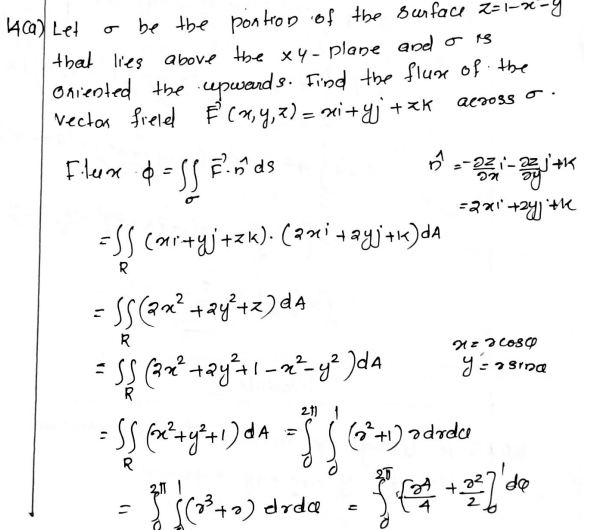 14(a) Let σ be the portion of the surface z=1-x-y
that lies above the xy-plane and σ is
oriented the upwards. Find the flux of the
vector field F⃗(x,y,z) = xi+yj+zk across σ.
Flux ϕ = ∬_σ F⃗.n̂ ds    n̂ = -∂z/∂x i - ∂z/∂y j + k
= 2xi + 2yj + k
= ∬_R (xi+yj+zk).(2xi+2yj+k)dA
= ∬_R (2x²+2y²+z)dA
= ∬_R (2x²+2y²+1-x²-y²)dA    x = rcosθ
y = rsinθ
= ∬_R (x²+y²+1)dA = ∫_0^{2π} ∫_0^1 (r²+1) rdrdθ
= ∫_0^{2π} ∫_0^1 (r³+r) drdθ = ∫_0^{2π} [r⁴/4 + r²/2]_0^1 dθ